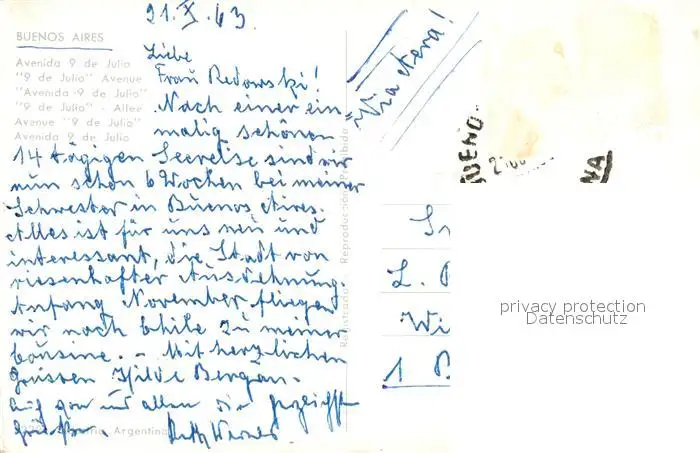 21.X.63.
BUENOS AIRES
Avenida 9 de Julio
"9 de Julio" Avenue
"Avenida 9 de Julio"
"9 de Julio" - Allee
Avenue "9 de Julio"
Avenida 9 de Julio
Liebe
Frau Redowski!
Nach einer ein
malig schönen
14 tägigen Seereise sind wir
nun schon 6 Wochen bei meiner
Schwester in Buenos Aires.
Alles ist für uns neu und
interessant, die Stadt von
riesenhafter Ausdehnung.
Anfang November fliegen
wir nach Chile zu meiner
Cousine. – Mit herzlichen
Grüssen Hilde Bergan.
und allen
Grüße. Werner
Argentina
Reproducción Prohibida
"Via Aerea!"
BUENO
NA
L.
Wi
1 B
privacy protection
Datenschutz